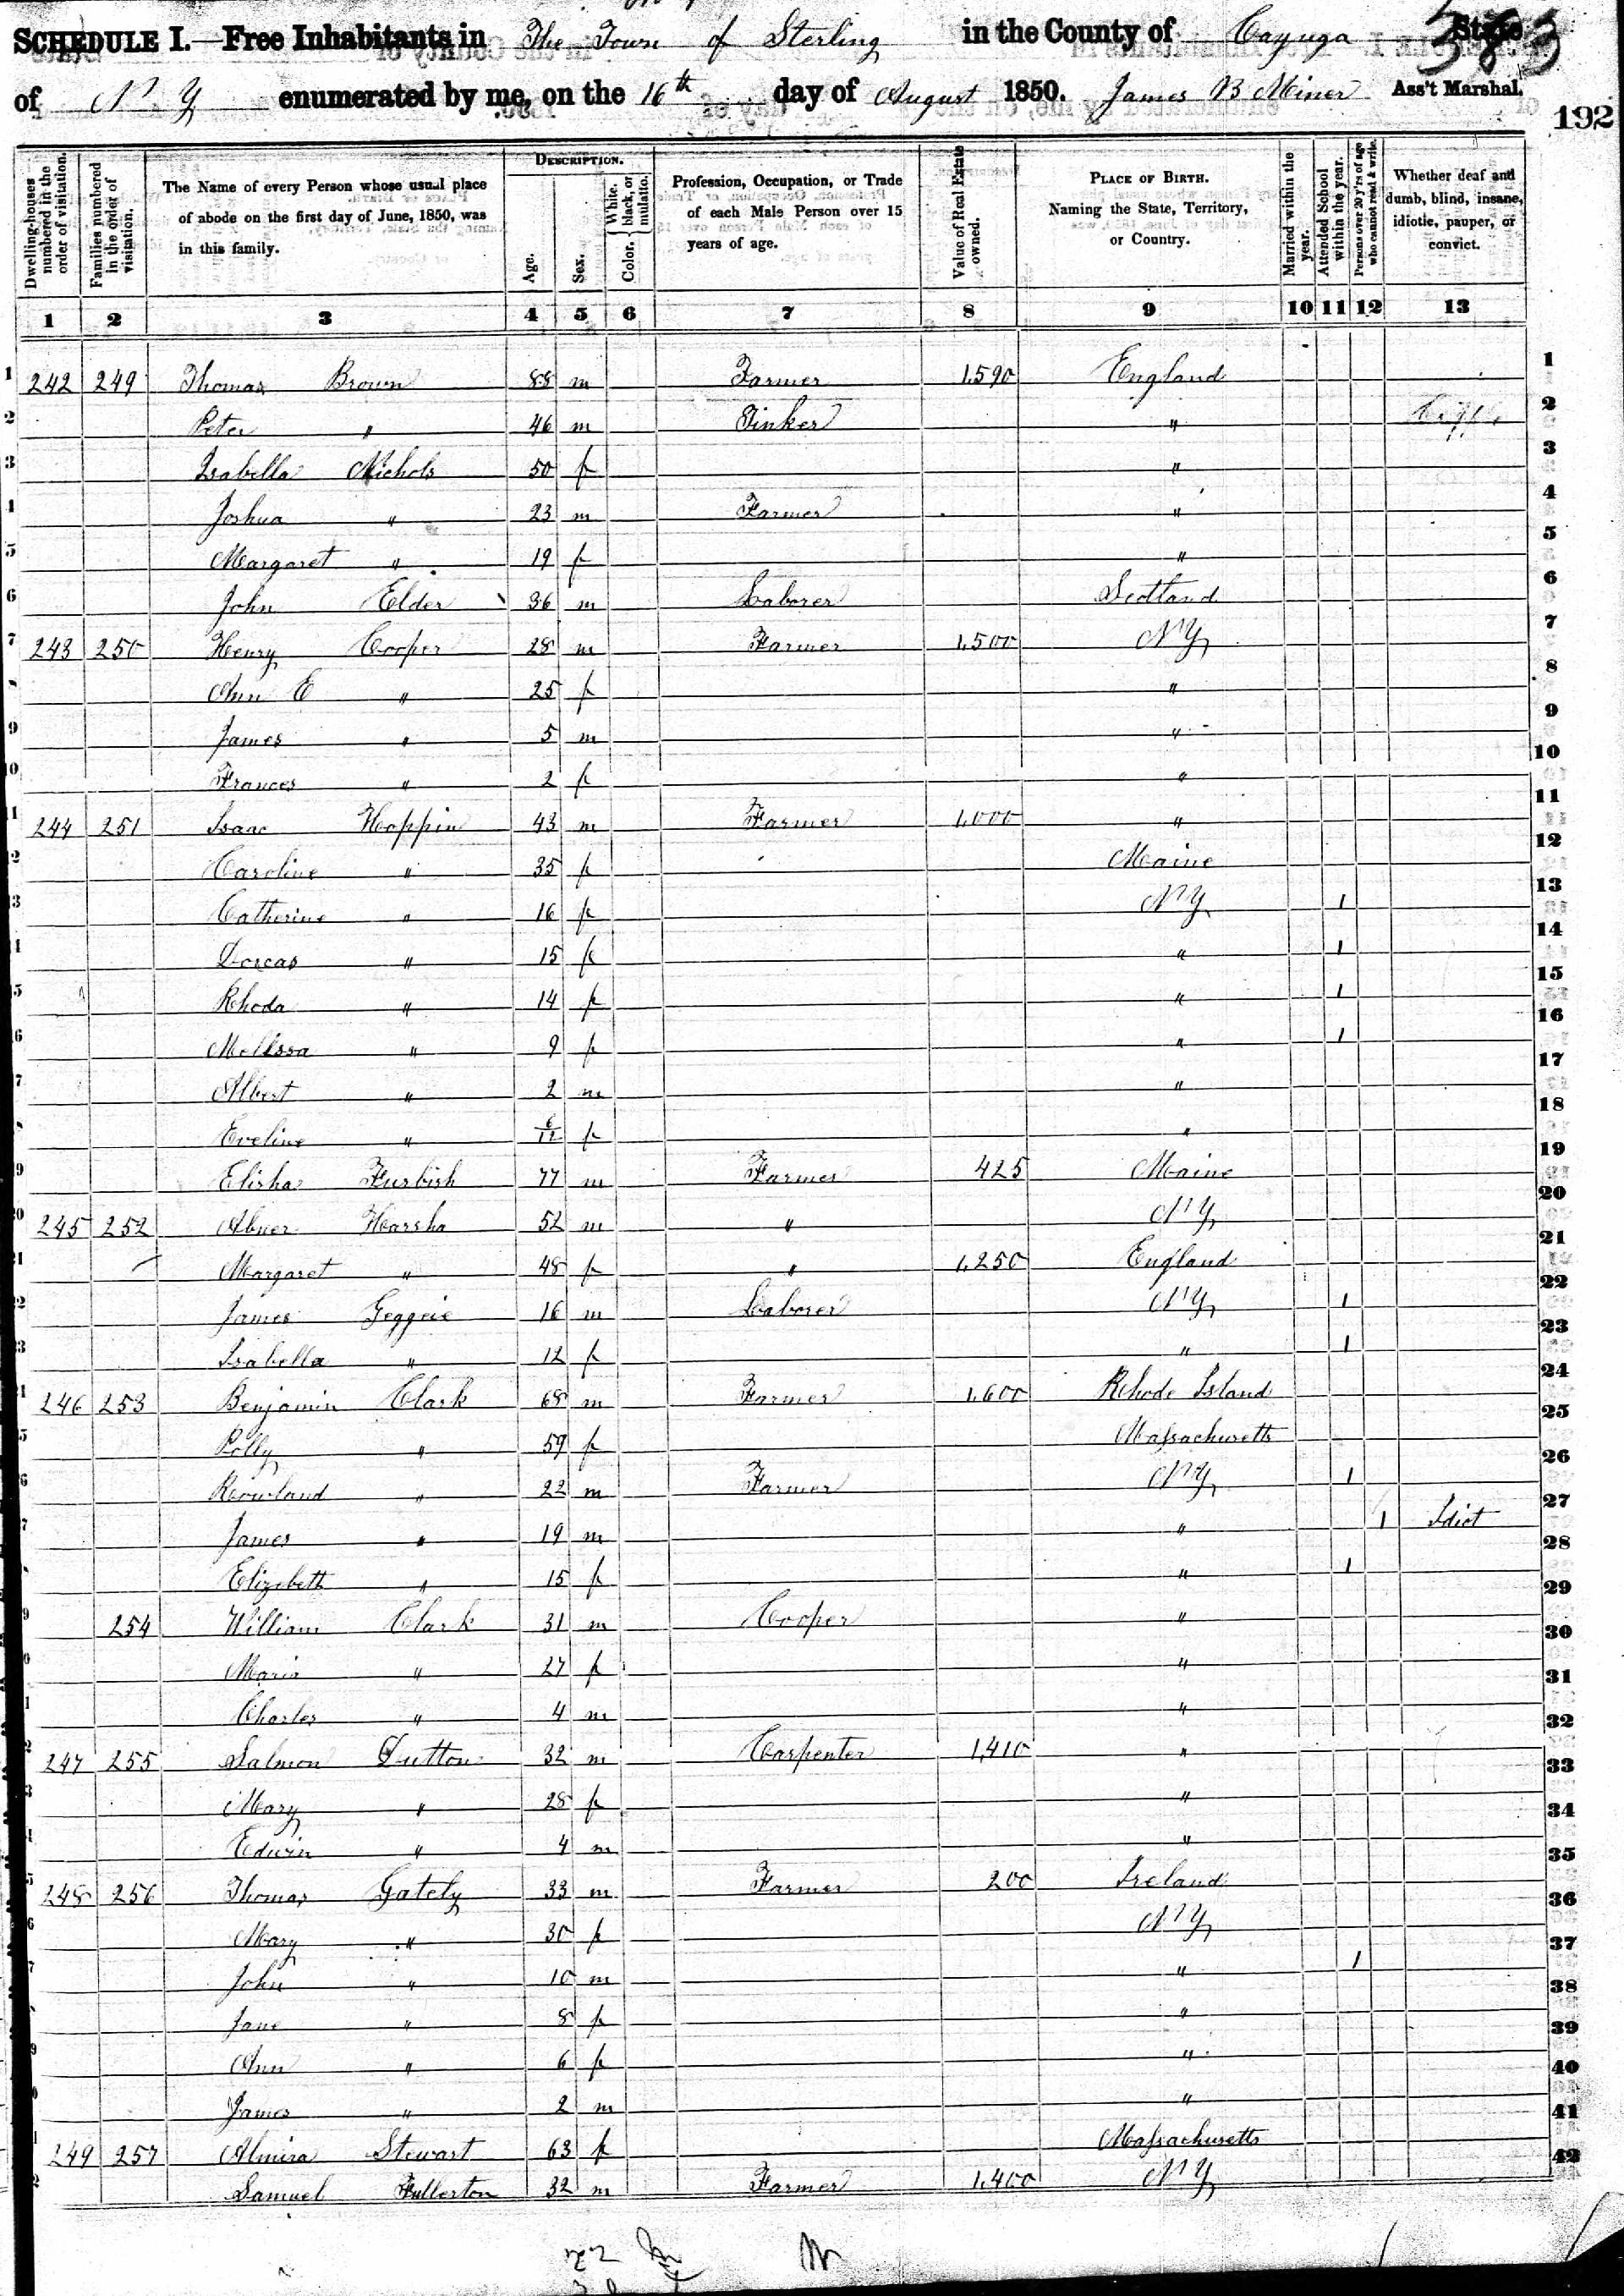 383
SCHEDULE I. Free Inhabitants in The Town of Sterling in the County of Cayuga State
of N Y enumerated by me, on the 16th day of August 1850. James B Miner Ass't Marshal.
192
Dwelling-houses numbered in the order of visitation. Families numbered in the order of visitation. The Name of every Person whose usual place of abode on the first day of June, 1850, was in this family. DESCRIPTION. Age. Sex. Color. { White, black, or mulatto. Profession, Occupation, or Trade of each Male Person over 15 years of age. Value of Real Estate owned. PLACE OF BIRTH. Naming the State, Territory, or Country. Married within the year. Attended School within the year. Persons over 20 y'rs of age who cannot read & write. Whether deaf and dumb, blind, insane, idiotic, pauper, or convict.
1 2 3 4 5 6 7 8 9 10 11 12 13
1 242 249 Thomas Brown 88 m Farmer 1,590 England 1
2 Peter " 46 m Tinker " 2
3 Isabella Nichols 50 f " 3
4 Joshua " 23 m Farmer " 4
5 Margaret " 19 f " 5
6 John Elder 36 m Laborer Scotland 6
7 243 250 Henry Cooper 28 m Farmer 1,500 N Y 7
Ann E " 25 f " 8
9 James " 5 m " 9
0 Frances " 2 f " 10
1 244 251 Isaac Hoppin 43 m Farmer 1,000 " 11
2 Caroline " 35 f Maine 12
3 Catherine " 16 f N Y 1 13
Dorcas " 15 f " 1 14
5 Rhoda " 14 f " 1 15
6 Melissa " 9 f " 1 16
7 Albert " 2 m " 17
Eveline " 6/12 f " 18
9 Elisha Furbish 77 m Farmer 425 Maine 19
0 245 252 Abner Harsha 52 m " N Y 20
1 Margaret " 48 f " 1,250 England 21
2 James Geggie 16 m Laborer N Y 1 22
3 Isabella " 12 f " 1 23
246 253 Benjamin Clark 68 m Farmer 1,600 Rhode Island 24
5 Polly " 59 f Massachusetts 25
6 Rowland " 22 m Farmer N Y 1 26
7 James " 19 m " 1 Idiot 27
Elizebeth " 15 f " 1 28
9 254 William Clark 31 m Cooper " 29
0 Maria " 27 f " 30
1 Charles " 4 m " 31
2 247 255 Salmon Dutton 32 m Carpenter 1,410 " 32
3 Mary " 28 f " 33
Edwin " 4 m " 34
5 248 256 Thomas Gately 33 m Farmer 200 Ireland 35
6 Mary " 30 f N Y 36
7 John " 10 m " 1 37
Jane " 8 f " 38
9 Ann " 6 f " 39
0 James " 2 m " 40
1 249 257 Almira Stewart 63 f Massachusetts 41
2 Samuel Fullerton 32 m Farmer 1,400 N Y 42